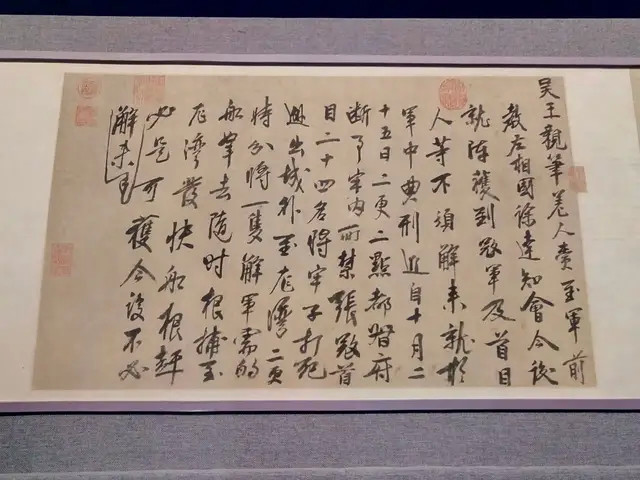 吳王親筆差人賫至軍前
教左相國徐達知會今後
就陣獲到寇軍及首目
人等不須解來就於
軍中典刑近自十月二
十五日二更二點都督府
斷了牢內所禁張寇首
目二十四名將牢子打死
城外至龍灣二更
時分將一隻解軍需的
船拏去隨時根捕至
龍灣發快船根趕
必是可獲今後不必
解來